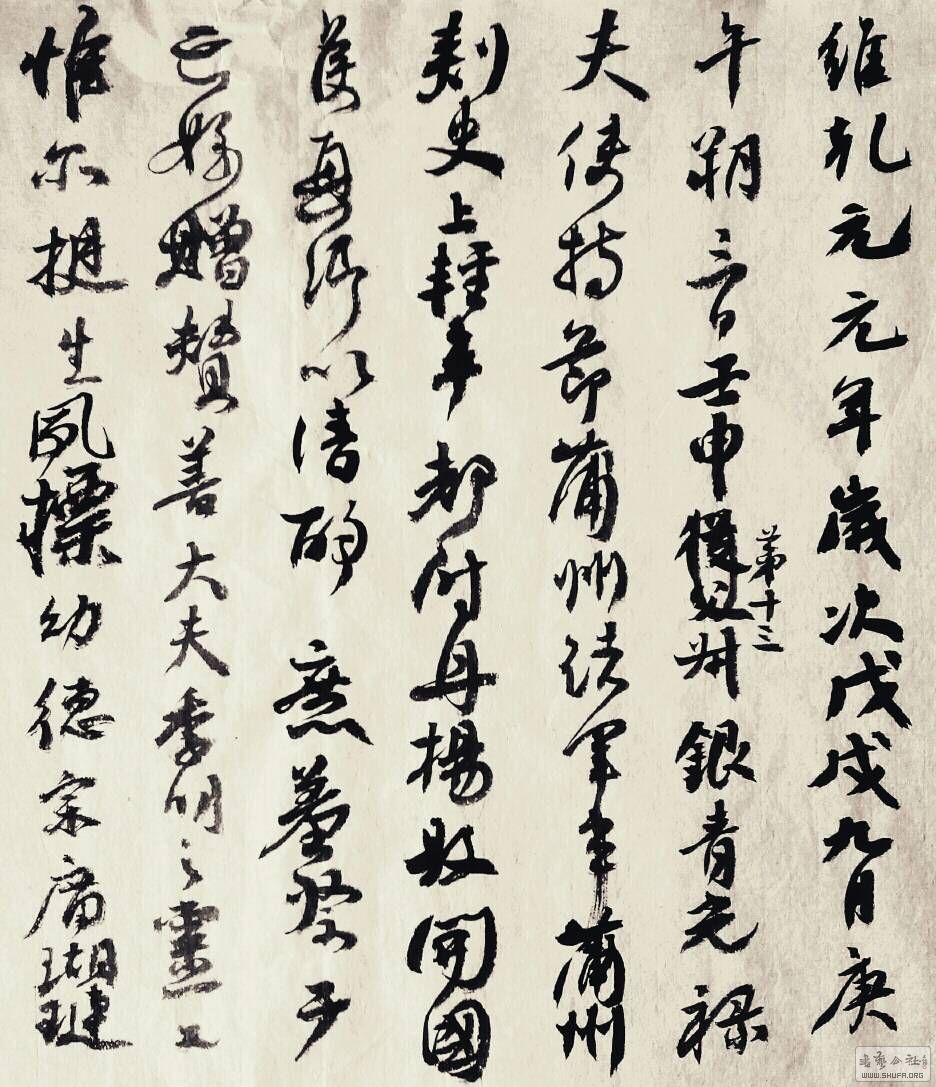 維乾元元年歲次戊戌九月庚
午朔三日壬申第十三叔銀青光祿
夫使持節蒲州諸軍事蒲州
刺史上輕車都尉丹楊縣開國
侯真卿以清酌庶羞祭于
亡姪贈贊善大夫季明之靈曰
惟爾挺生夙標幼德宗廟瑚璉
書藝公社
WWW.SHUFA.ORG